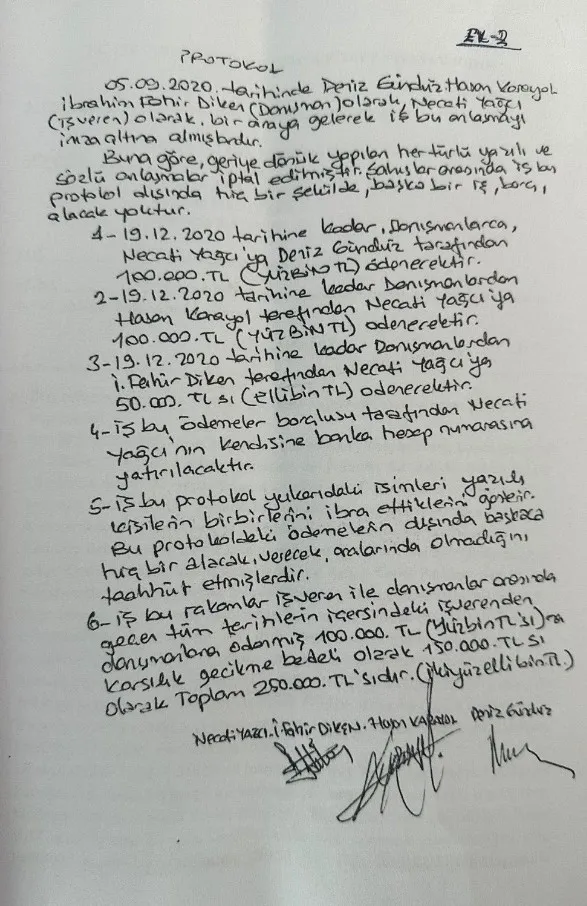 EK-2
PROTOKOL
05.09.2020 tarihinde Deniz Gündüz, Hasan Karayol
İbrahim Fahir Diken (Danışman) olarak, Necati Yağcı
(İşveren) olarak, bir araya gelerek iş bu anlaşmayı
imza altına almışlardır.
Buna göre, geriye dönük yapılan her türlü yazılı ve
sözlü anlaşmalar iptal edilmiştir. Şahıslar arasında iş bu
protokol dışında hiç bir şekilde, başka bir iş, borç,
alacak yoktur.
1-19.12.2020 tarihine kadar, Danışmanlarca,
Necati Yağcı'ya Deniz Gündüz tarafından
100.000.TL (YÜZBİN TL) ödenecektir.
2-19.12.2020 tarihine kadar Danışmanlardan
Hasan Karayol terefından Necati Yağcı'ya
100.000.TL (YÜZBİN TL) ödenecektir.
3-19.12.2020 tarihine kadar Danışmanlardan
İ. Fahir Diken terefından Necati Yağcı'ya
50.000. TL sı (ellibin TL) ödenecektir.
4-iş bu, ödemeler borçlusu tarafından Necati
Yağcı'nın kendisine banka hesap numarasına
yatırılacaktır.
5-iş bu protokol yukarıdaki isimleri yazılı
kişilerin birbirlerini ibra ettiklerini gösterir.
Bu protokoldeki ödemelerin dışında başkaca
hiç bir alacak, verecek, aralarında olmadığını
taahhüt etmişlerdir.
6-iş bu rakamlar işveren ile danışmanlar arasında
geçen tüm tarihlerin içersindeki işverenden
danışmanlara ödenmiş 100.000. TL (Yüzbin TL'sı)na
karşılık gecikme bedeli olarak 150.000.TL sı
olarak Toplam 250.000.TL'sıdır. (ikiyüzellibin TL.)
Necati YAZCI. İ Fahir DİKEN. Hasan KARAYOL Deniz Gündüz